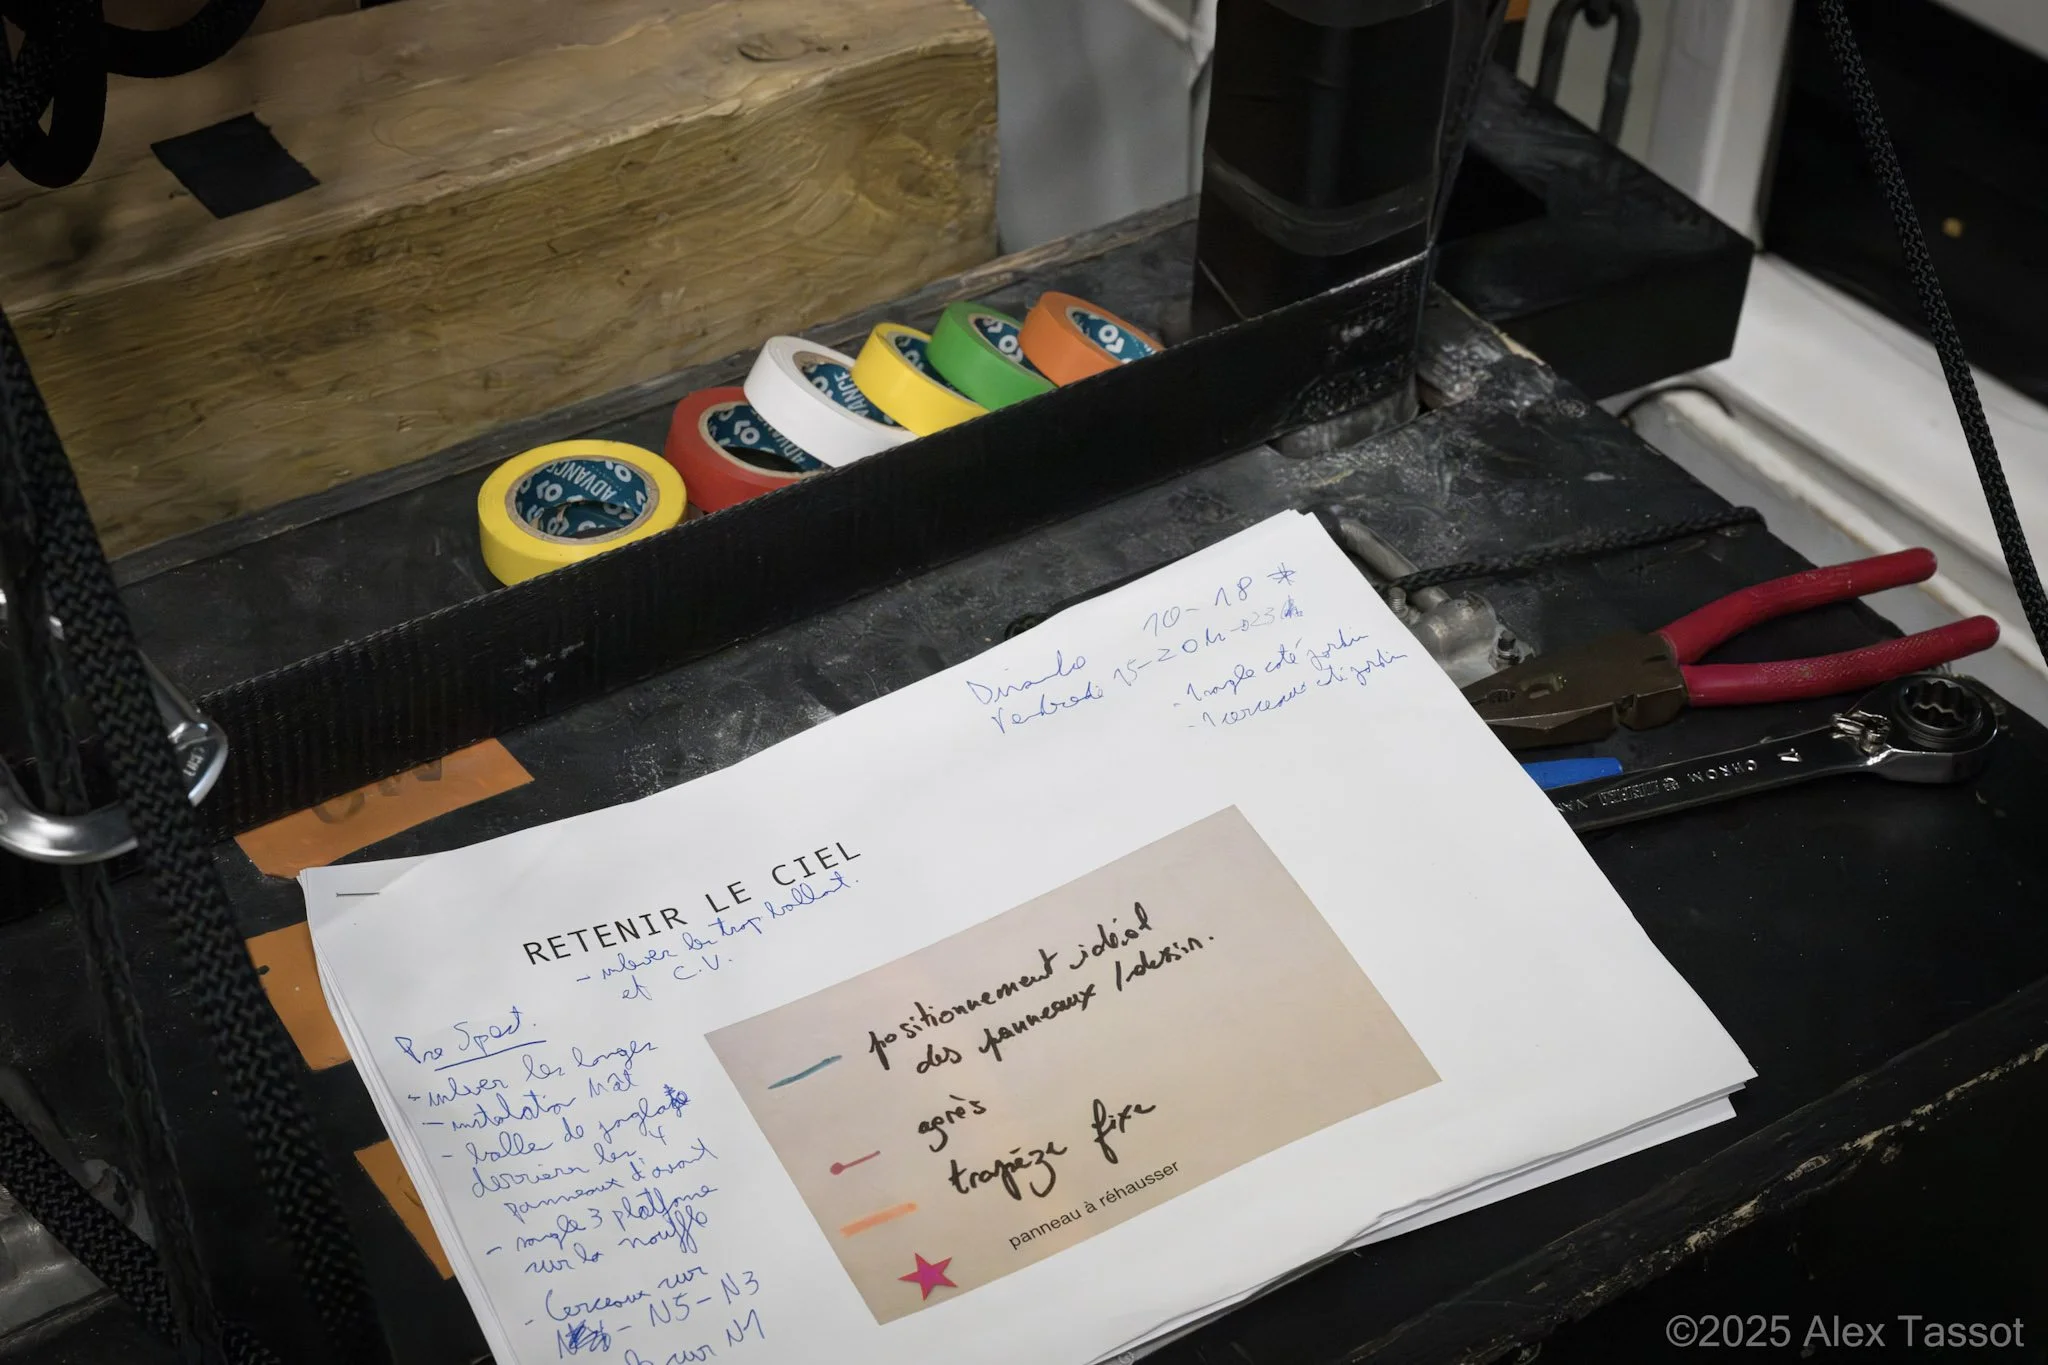 ADVANCE
ADVANCE
ADVANCE
10-18 *
Vendredi 15-20h →23h
- 1 sangle coté jardin
- 1 cerceaux coté jardin
17 CHROM
VAN
RETENIR LE CIEL
- enlever les trop ballant.
et C.V.
Pre Spect.
- enlever les longes
- installation Mât
- balle de jonglage
derrière les 4
panneaux d'avant
- sangle 3 platforme
sur la
- Cerceaux sur
- N5 - N3
sur N1
positionnement idéal
des panneaux / dessin.
agrès
trapèze fixe
panneau à réhausser
©2025 Alex Tassot